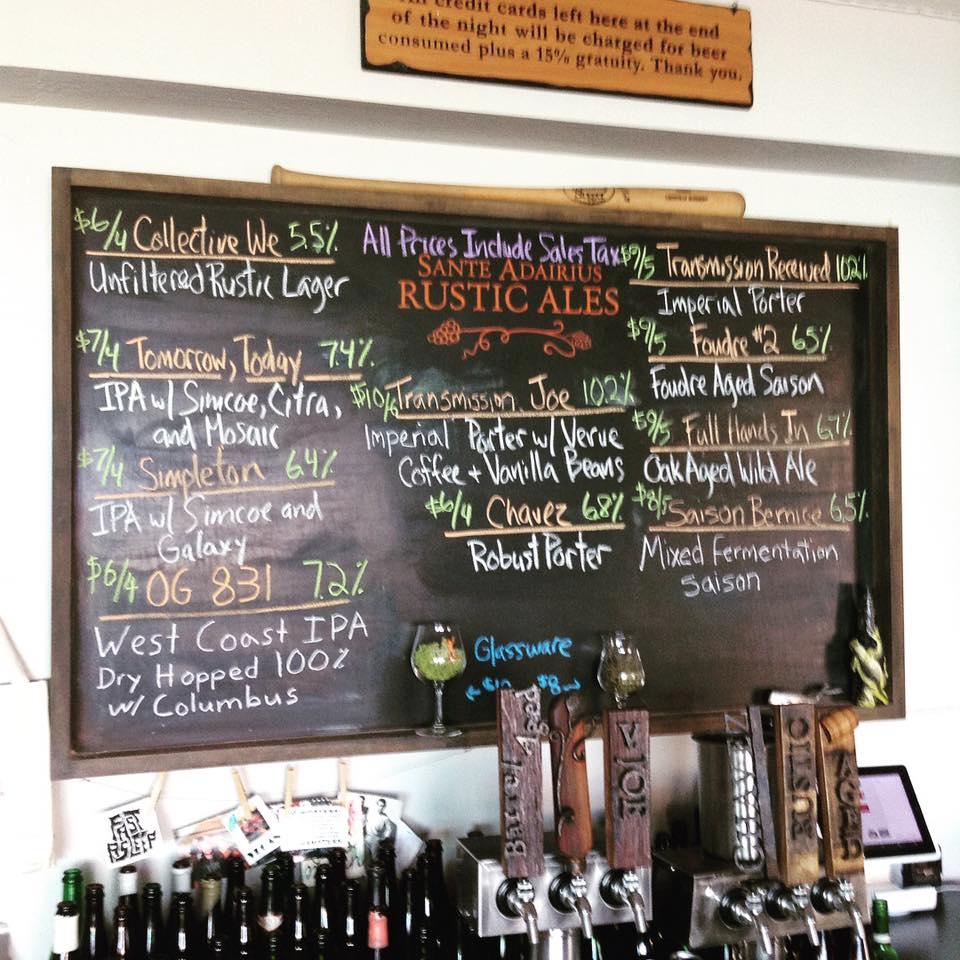 credit cards left here at the end
of the night will be charged for beer
consumed plus a 15% gratuity. Thank you.
$6/4 Collective We 5.5%
Unfiltered Rustic Lager
$7/4 Tomorrow, Today 7.4%
IPA w/ Simcoe, Citra,
and Mosaic
$7/4 Simpleton 6.4%
IPA w/ Simcoe and
Galaxy
$6/4 OG 831 7.2%
West Coast IPA
Dry Hopped 100%
w/ Columbus
All Prices Include Sales Tax
SANTE ADAIRIUS
RUSTIC ALES
$10/6 Transmission Joe 10.2%
Imperial Porter w/ Verve
Coffee + Vanilla Beans
$6/4 Chavez 6.8%
Robust Porter
Glassware
$8
$9/5 Transmission Received 10.2%
Imperial Porter
$9/5 Foudre #2 6.5%
Foudre Aged Saison
$9/5 Full Hands In 6.7%
Oak Aged Wild Ale
$8/5 Saison Bernice 6.5%
Mixed Fermentation
Saison
Barrel Aged
CHAVEZ
RUSTIC
FAST
ASLEEP